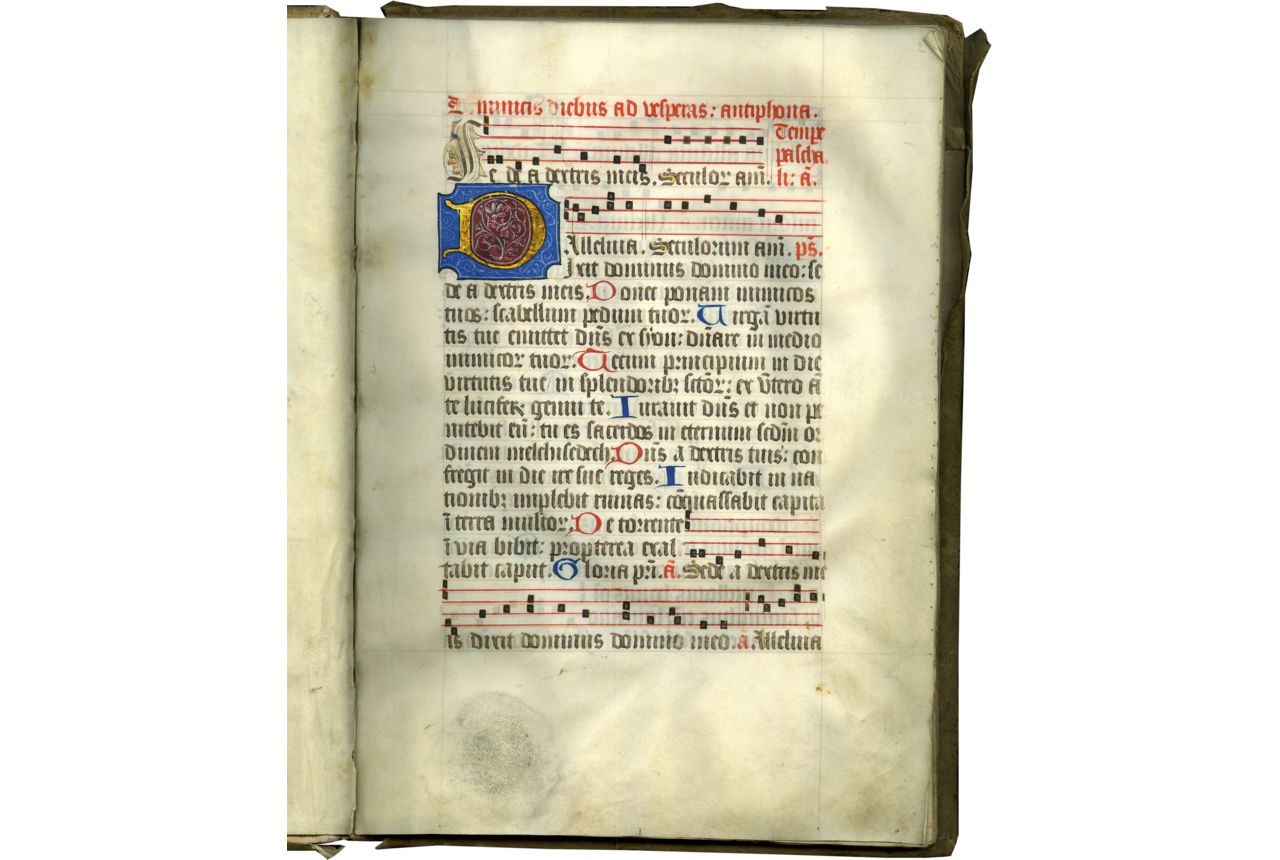 Dominicis diebus ad vesperas: antiphona.
Tempe
pascha
Se de a dextris meis. Seculoꝝ am̄. li: ā.
Alleluia. Seculorum am̄. p̄s.
Dixit dominus domino meo: se
de a dextris meis. Donec ponam inimicos
tuos: scabellum pedum tuoꝝ. Uirgā virtu
tis tue emittet dn̄s ex syon: dn̄are in medio
inimicoꝝ tuoꝝ. Tecum principium in die
virtutis tue in splendoribꝫ sctōꝝ: ex v̄tero ā
te lucifeꝝ genui te. Iurauit dn̄s et non pe
nitebit eū: tu es sacerdos in eternum scdm̄ or
dinem melchisedech. Dn̄s a dextris tuis: con
fregit in die ire sue reges. Iudicabit in na
tionibꝫ implebit ruinas: cōquassabit capita
ī terra multoꝝ. De torrente
ī via bibit: propterea exal
tabit caput. Gloria pr̄i. ā. Sede a dextris me
is dixit dominus domino meo. ā Alleluia